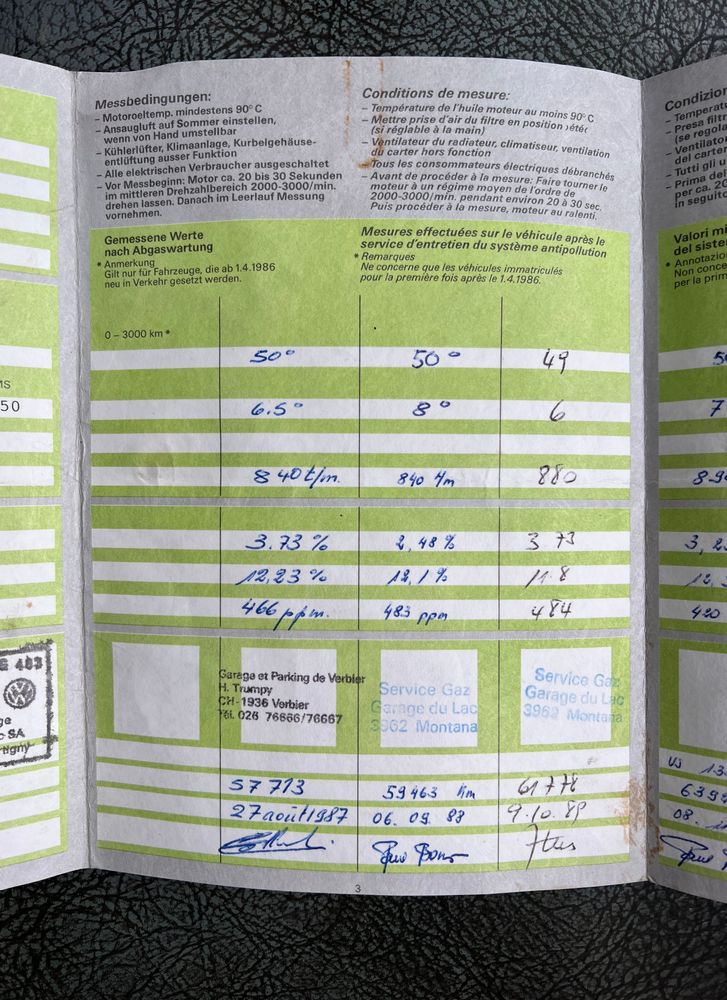 Messbedingungen:
– Motoroeltemp. mindestens 90° C
– Ansaugluft auf Sommer einstellen,
wenn von Hand umstellbar
– Kühlerlüfter, Klimaanlage, Kurbelgehäuse-
entlüftung ausser Funktion
– Alle elektrischen Verbraucher ausgeschaltet
– Vor Messbeginn: Motor ca. 20 bis 30 Sekunden
im mittleren Drehzahlbereich 2000-3000/min.
drehen lassen. Danach im Leerlauf Messung
vornehmen.
Conditions de mesure:
– Température de l'huile moteur au moins 90° C
– Mettre prise d'air du filtre en position
(si réglable à la main)
– Ventilateur du radiateur, climatiseur, ventilation
du carter hors fonction
– Tous les consommateurs électriques débranchés
– Avant de procéder à la mesure: Faire tourner le
moteur à un régime moyen de l'ordre de
2000-3000/min. pendant environ 20 à 30 sec.
Puis procéder à la mesure, moteur au ralenti.
Gemessene Werte
nach Abgaswartung
* Anmerkung
Gilt nur für Fahrzeuge, die ab 1.4.1986
neu in Verkehr gesetzt werden.
Mesures effectuées sur le véhicule après le
service d'entretien du système antipollution
* Remarques
Ne concerne que les véhicules immatriculés
pour la première fois après le 1.4.1986.
0 – 3000 km *
50° 50° 49
6.5° 8° 6
840 t/m. 840 t/m 880
3.73 % 2,48 % 3 73
12,23 % 12,1 % 11.8
466 ppm. 483 ppm 484
Garage et Parking de Verbier
H. Trumpy
CH-1936 Verbier
Tél. 026 76666/76667
Service Gaz
Garage du Lac
3962 Montana
Service Gaz
Garage du Lac
3962 Montana
57713 59463 Km 61778
27 août 1987 06.09.88 9.10.89
3